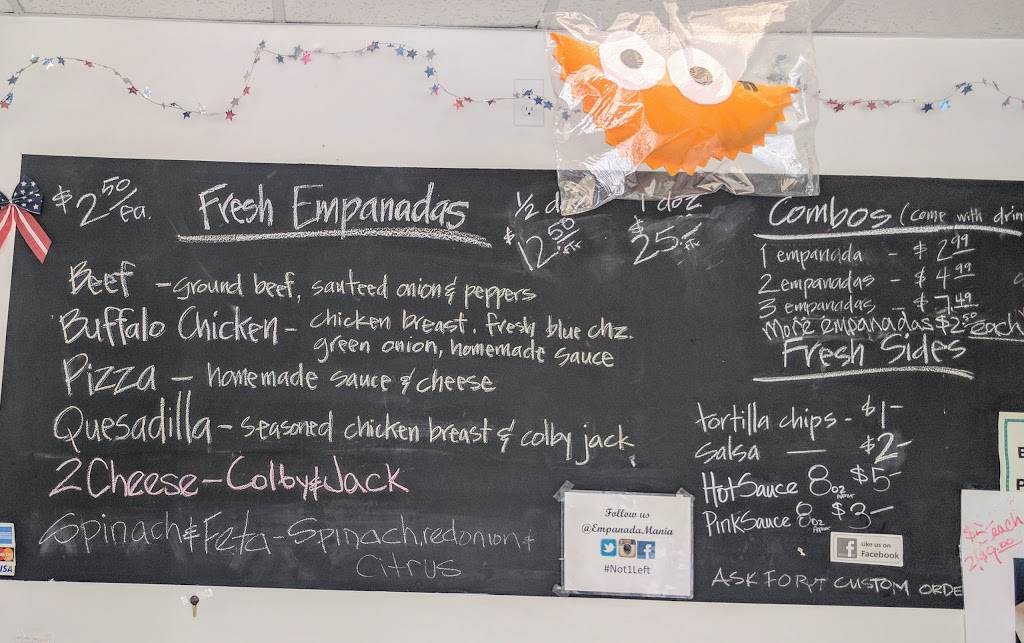 $2.50/ea.
Fresh Empanadas
1/2 d
1 doz
$12.50
$25.-
Beef - ground beef, sauteed onion & peppers
Buffalo Chicken - chicken breast, fresh blue chz.
green onion, homemade sauce
Pizza - homemade sauce & cheese
Quesadilla - seasoned chicken breast & colby jack
2 Cheese - Colby & Jack
Spinach & Feta - Spinach, red onion &
Citrus
Combos (come with drin
1 empanada - $2.99
2 empanadas - $4.99
3 empanadas - $7.49
More empanadas $2.50 each
Fresh Sides
tortilla chips - $1-
Salsa — $2-
Hot Sauce 8oz $5-
Pink Sauce 8oz $3-
Like us on
Facebook
ASK FOR CUSTOM ORDE
Follow us
@Empanada.Mania
#Not1Left
VISA
each